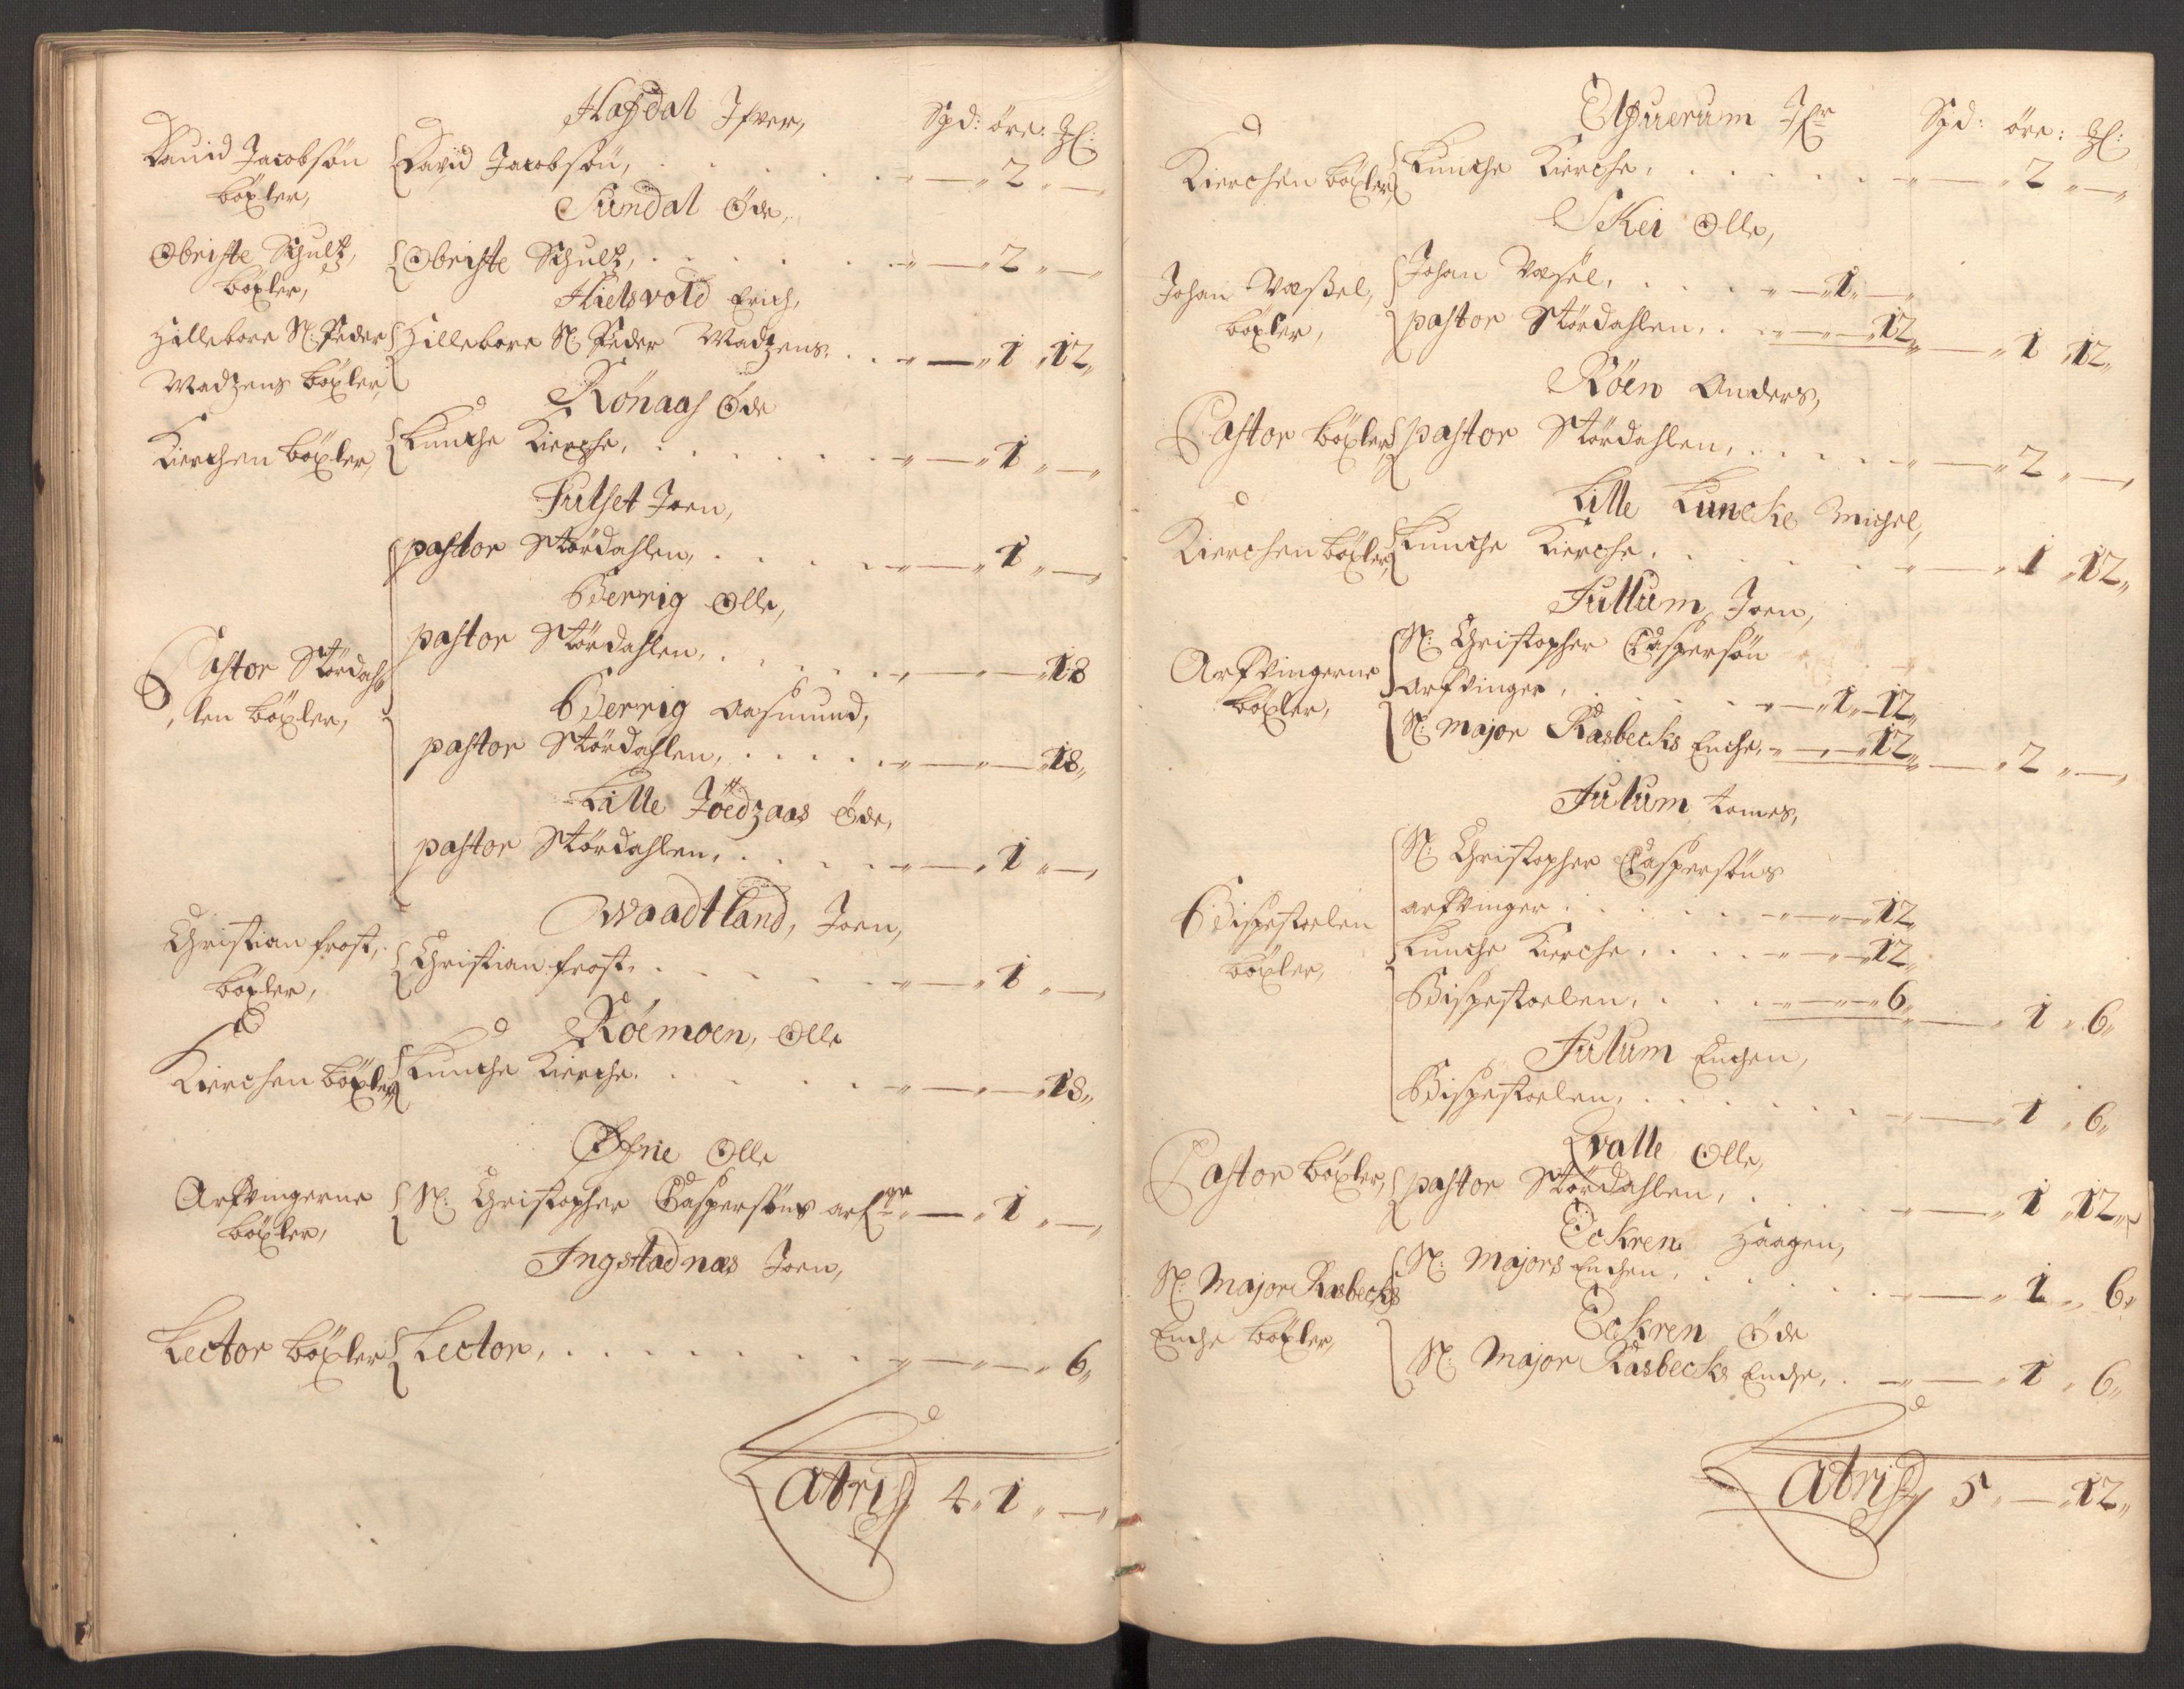 Hafdal Ifver, Spd: öre: ȝl:
David Jacobsön böxler, David Jacobsön, 2 „ —
Sundal Öde,
Obriste Schultz, böxler, Obriste Schultz, 2 „ —
Hielsvold Erich,
Hilleborre Sl: Peder Madzens böxler, Hilleborre Sl: Peder Madzens, 1 „ 12 „
Rönaas Öde
Kierchen böxler, Luncke Kierche, 1 „ —
Fulset Joen,
pastor Stördahlen, 1 „ —
Berrig Olle,
Pastor Stördahlen böxler, pastor Stördahlen, 18
Berrig Aasmund,
pastor Stördahlen, 18 „
Lille Jöedzaas Öde,
pastor Stördahlen, 1 „ —
Waadtland, Joen,
Christian frost, böxler, Christian frost, 1 „ —
Röemoen, Olle
Kierchen böxler, Luncke Kierche, 18 „
Øfrie Olle
Arfvingerne böxler, Sl: Christopher Caspersöns arfgr 1 „ —
Ingstadnæs Joen,
Lector böxler, Lector, 6 „
Latris 4 „ 1 „ —
Elfuerum Spd: öre: ȝl:
Kierchen böxler, Luncke Kierche, 2 „ —
Skei Olle,
Johan Væssel, böxler, Johan Væssel, 1 „ —
pastor Stördahlen, 12 „ 1 „ 12 „
Röen Anders,
Pastor böxler, pastor Stördahlen, 2 „ —
Lille Luncke Michel,
Kierchen böxler, Luncke Kierche, 1 „ 12 „
Jullum Joen,
Arfvingerne böxler, Sl: Christopher Caspersön
arfvinger, 1 „ 12 „
Sl: Major Rasbecks Enche, 12 „ 2 „ —
Julum tomes,
Sl: Christopher Caspersöns
Bispestoelen böxler, arfvinger 12
Luncke Kierche, 12 „
Bispestoelen, 6 „ 1 „ 6 „
Julum Enchen,
Bispestoelen, 1 „ 6 „
Qvalle Olle,
Pastor böxler, pastor Stördahlen, 1 „ 12 „
Eckren Haagen,
Sl: Major Rasbecks Enche böxler, Sl: Majors Enchen, 1 „ 6 „
Eckren Öde
Sl: Major Rasbecks Enche, 1 „ 6 „
Latris 5 „ — „ 12 „